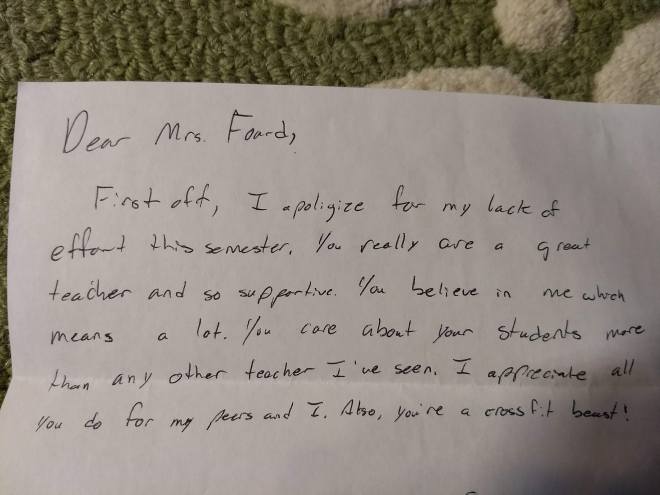 Dear Mrs. Foard,
First off, I apoligize for my lack of
effort this semester. You really are a great
teacher and so supportive. You believe in me which
means a lot. You care about your students more
than any other teacher I've seen. I appreciate all
you do for my peers and I. Also, you're a crossfit beast!